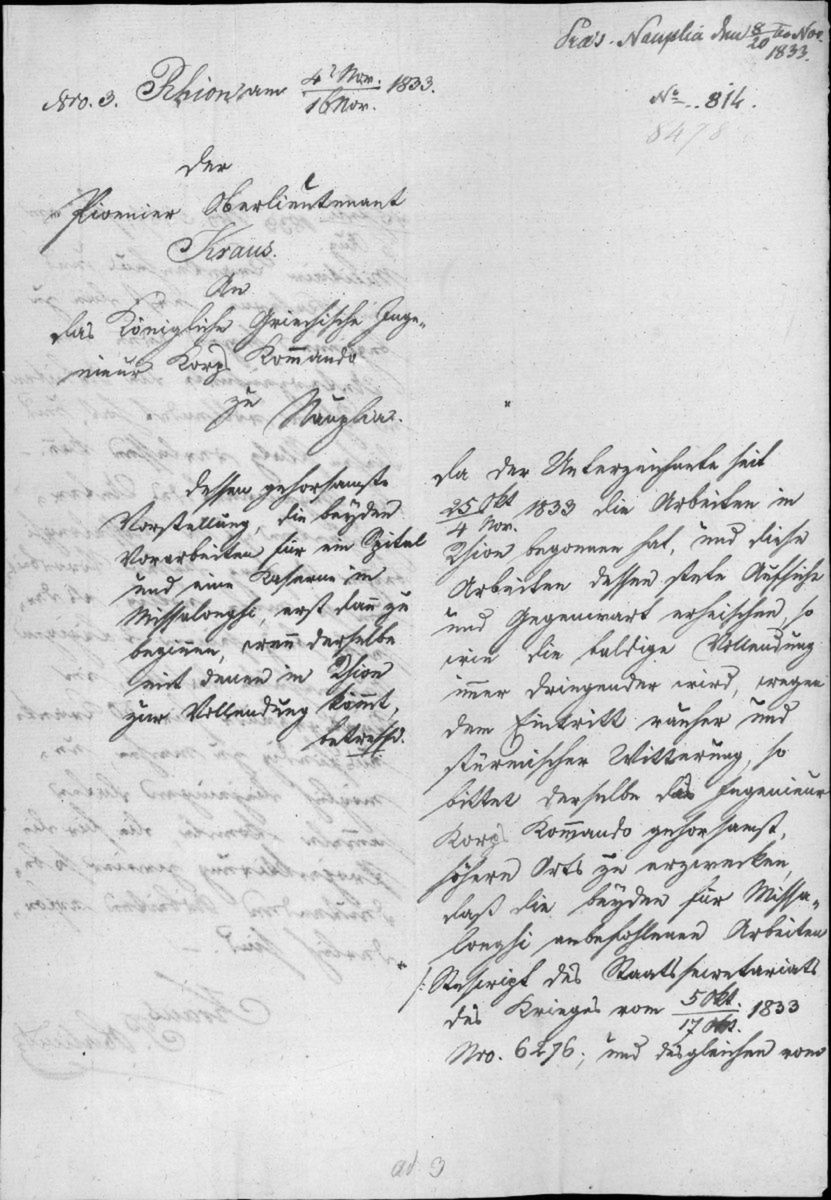 Präs. Nauplia den 8/20 ten Nov.
1833.
Nro. 3. Rhion am 4/16 Nov. 1833.
No. 814.
8478
Der
Pionier Oberlieutenant
Kraus.
An
das Königliche Griechische Inge-
nieur Korps Kommando
zu Nauplia.
Dessen gehorsamste
Vorstellung, die beyden
Vorarbeiten für ein Spital
und eine Kaserne in
Missolonghi, erst dann zu
beginnen, wenn derselbe
mit denen in Rhion
zur Vollendung kömmt,
betreffd.
Da der Unterzeichnete seit
25 Okt/4 Nov. 1833 die Arbeiten in
Rhion begonnen hat, und diese
Arbeiten dessen stete Aufsicht
und Gegenwart erheischen, so
wie die baldige Vollendung
immer dringender wird, wegen
dem Eintritt rauher und
stürmischer Witterung, so
bittet derselbe das Ingenieur
Korps Kommando gehorsamst,
höhern Orts zu erzwecken,
daß die beyden für Misso-
longhi anbefohlenen Arbeiten
/: Rescript des Staatssecretariats
des Krieges vom 5 Okt./17 Okt. 1833
Nro. 6276; und desgleichen vom
ad 3